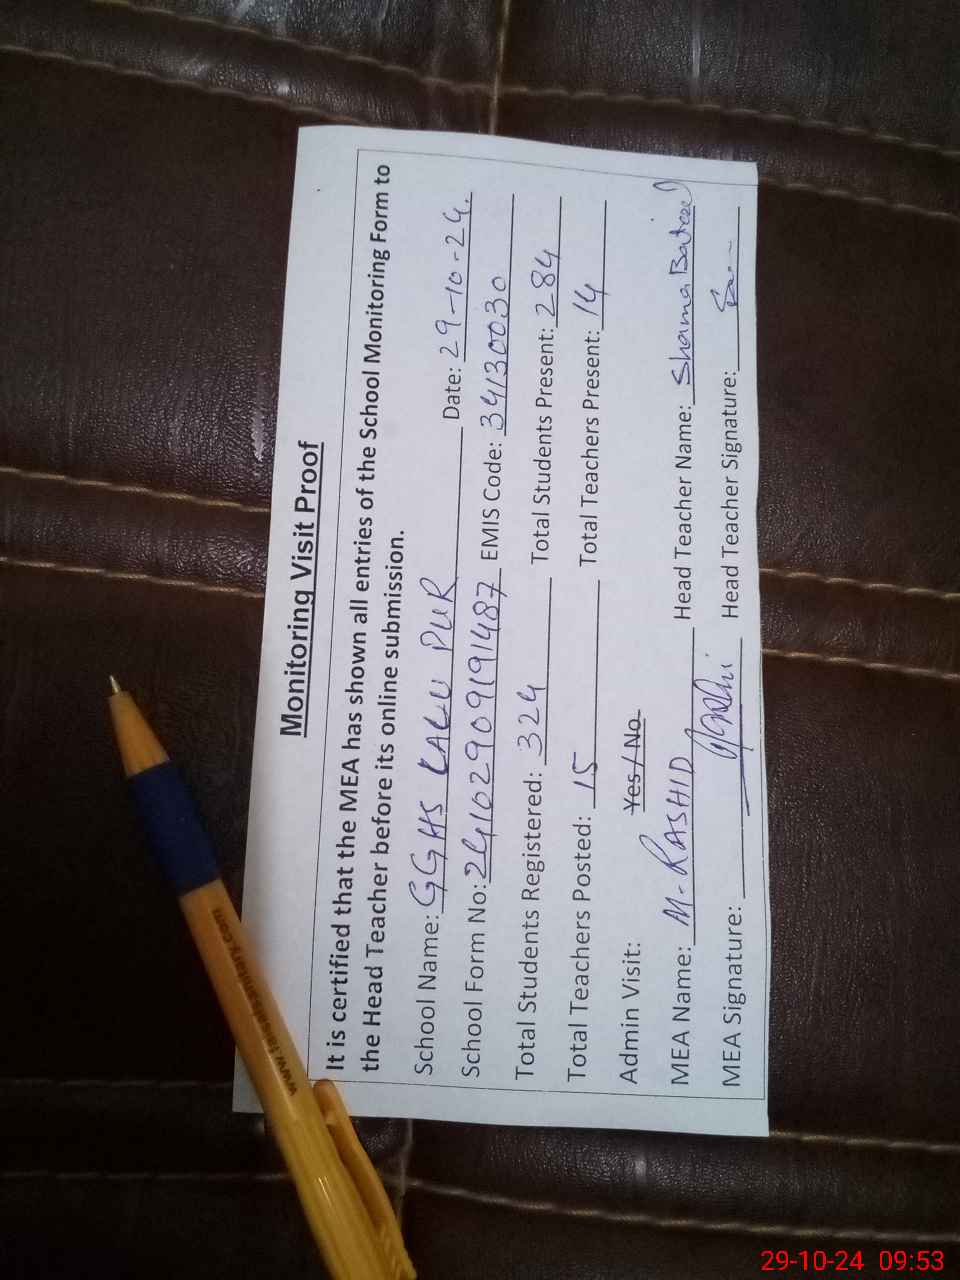 Monitoring Visit Proof
It is certified that the MEA has shown all entries of the School Monitoring Form to
the Head Teacher before its online submission.
School Name: GGHS KALU PUR Date: 29-10-24.
School Form No: 24102909191487 EMIS Code: 34130030
Total Students Registered: 324 Total Students Present: 284
Total Teachers Posted: 15 Total Teachers Present: 14
Admin Visit: Yes / No
MEA Name: M. RASHID Head Teacher Name: Shama
MEA Signature: Head Teacher Signature:
29-10-24 09:53